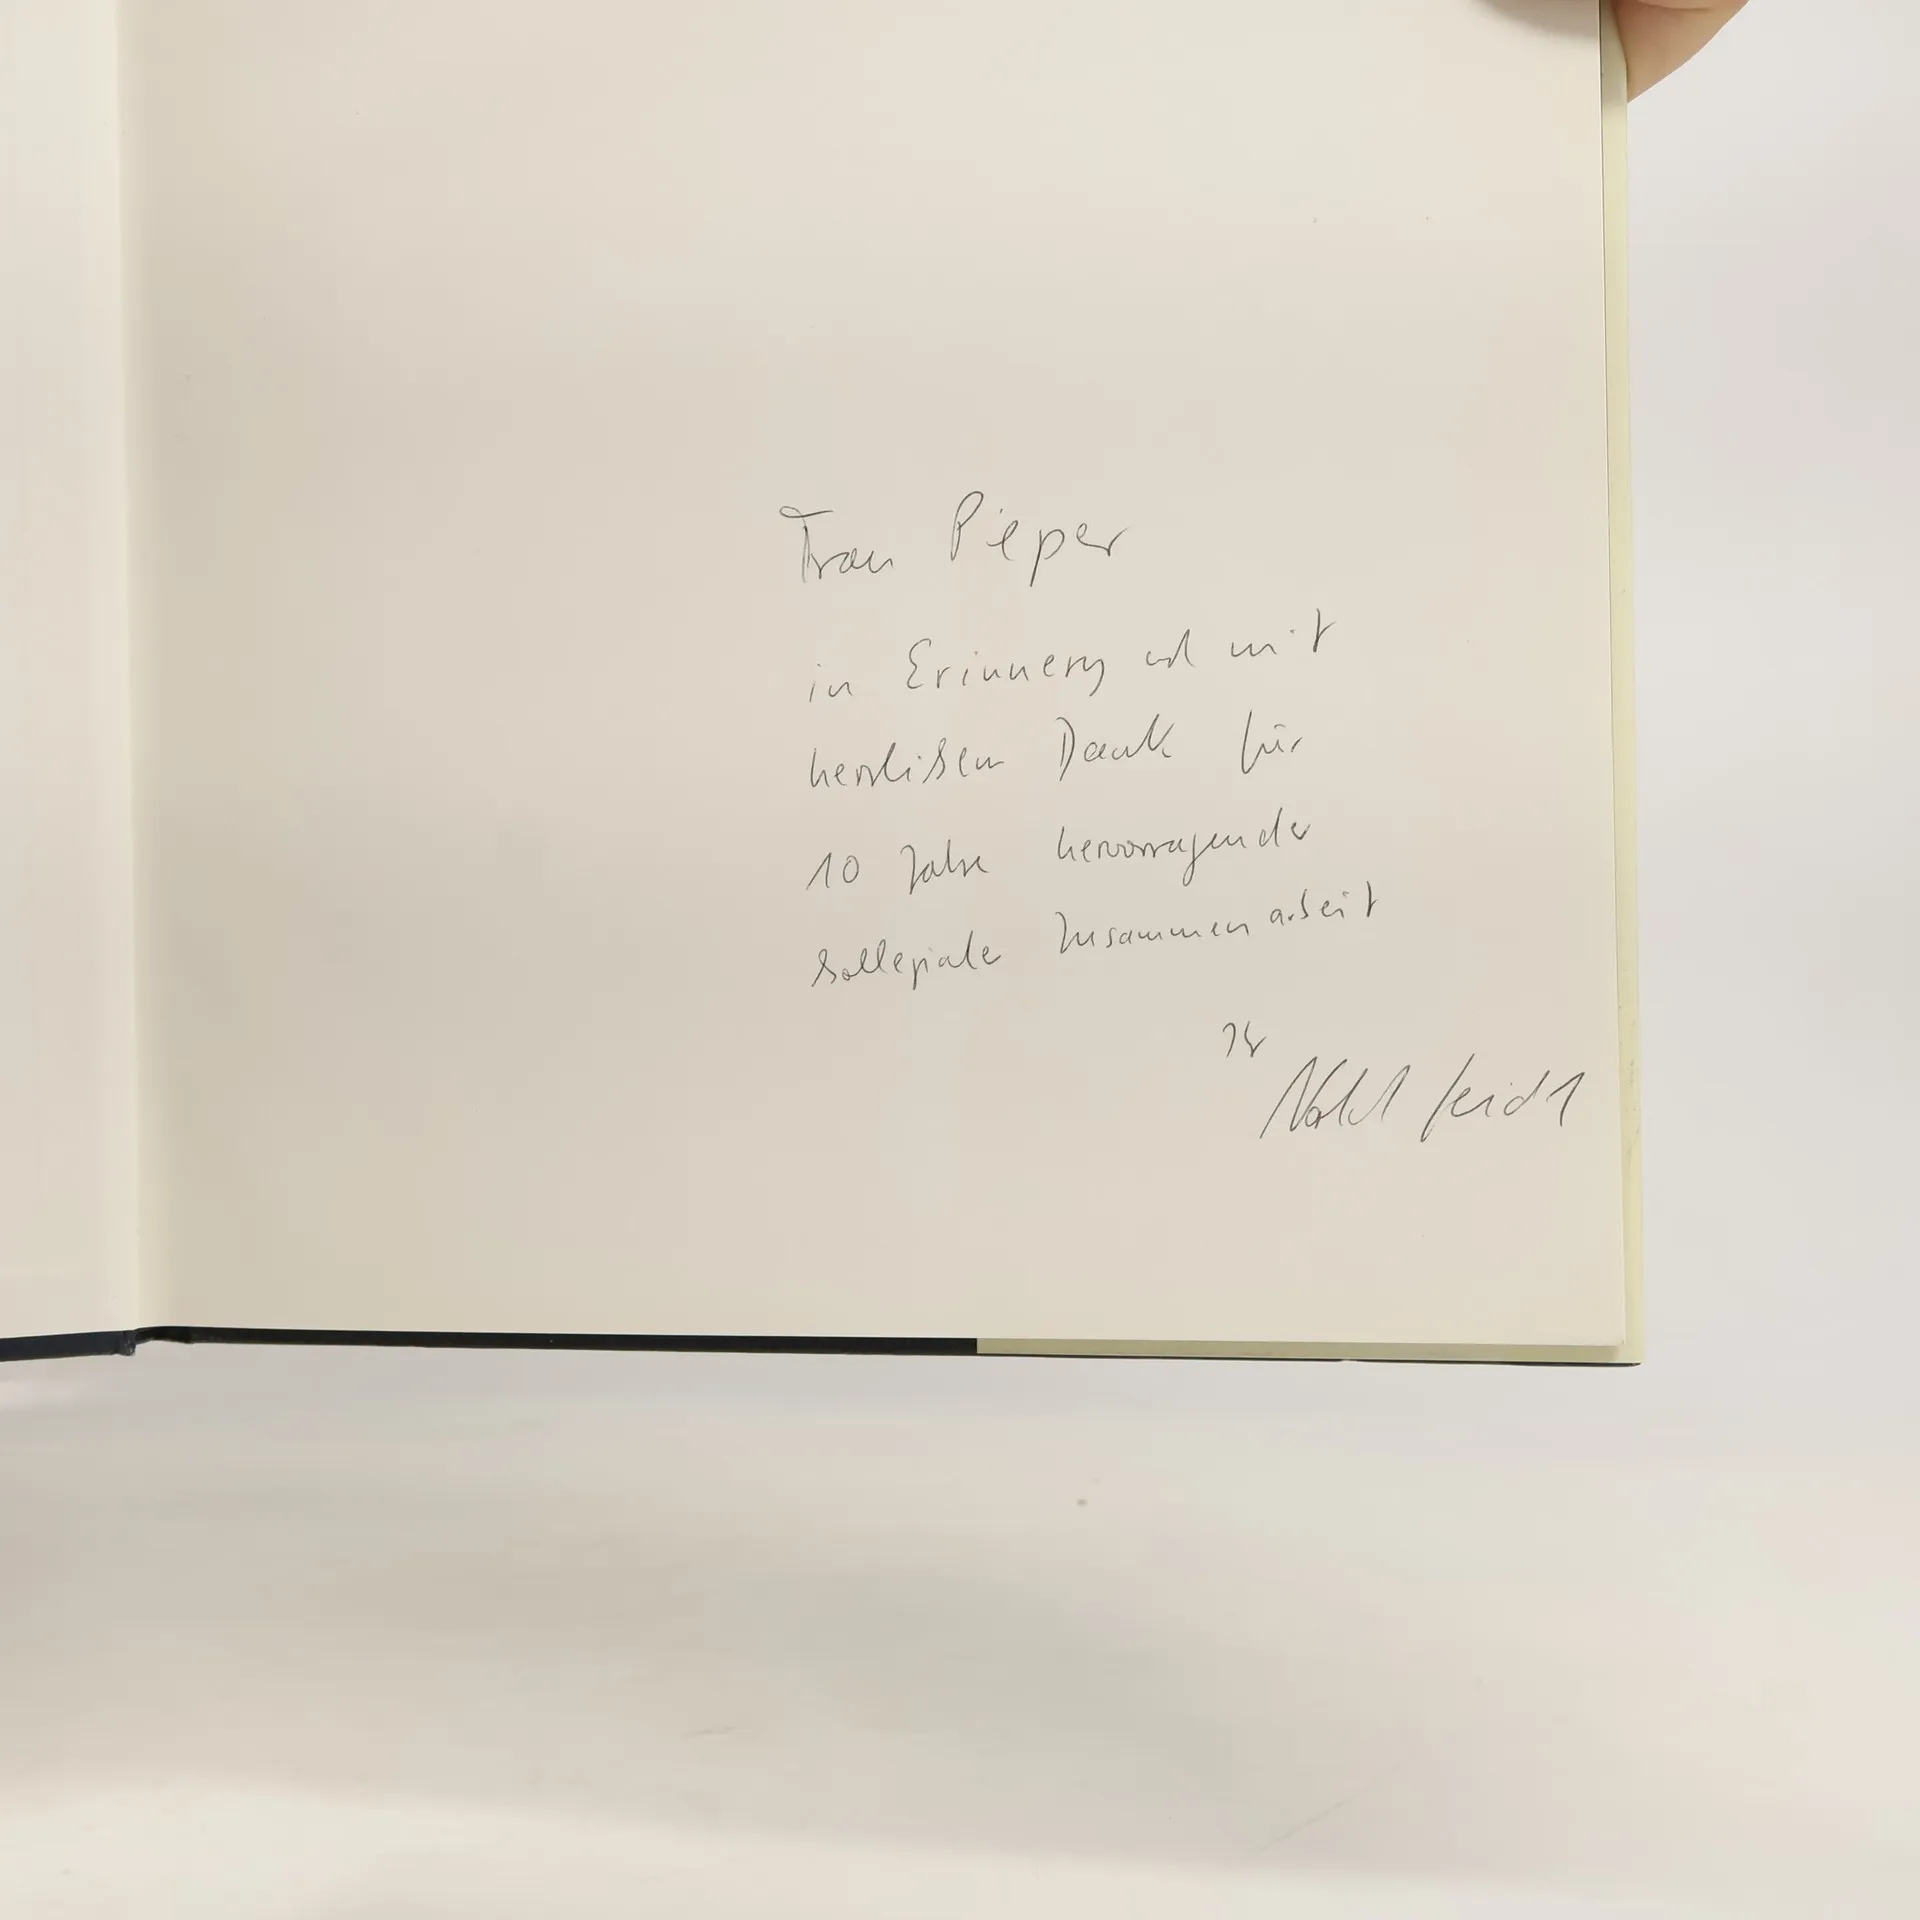 Frau Pieper
in Erinnerung und mit
herzlichem Dank für
10 Jahre hervorragende
kollegiale Zusammenarbeit
Ihr